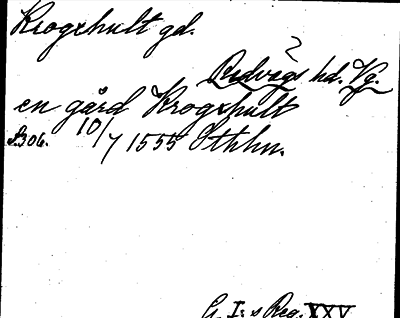 Krogxhult gd.
?
Redvägs hd. Vg.
en gård Krogxhult
s. 306. 10/7 1555 Sthlm.
G. I:s Reg. XXV